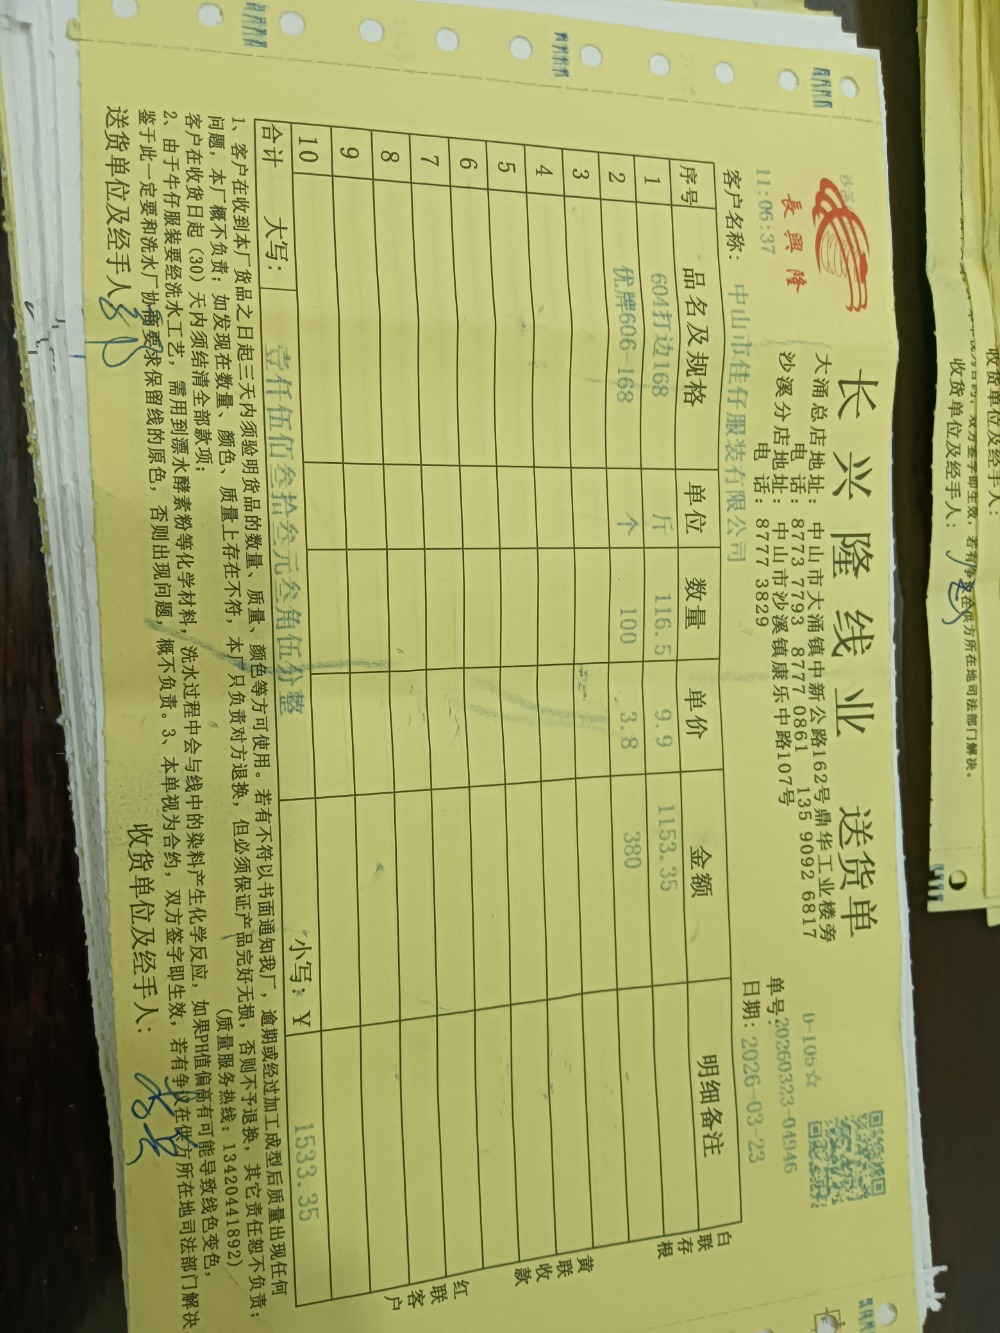 长兴隆线业 送货单
長興隆
大涌总店地址：中山市大涌镇中新公路162号鼎华工业楼旁
电 话：8773 7793 8777 0861 135 9092 6817
沙溪分店地址：中山市沙溪镇康乐中路107号
电 话：8777 3829
D-105☆
单号：20260323-04946
日期：2026-03-23
11:06:37
客户名称：中山市佳仔服装有限公司
序号 品名及规格 单位 数量 单价 金额 明细备注
1 604打边168 斤 116.5 9.9 1153.35
2 优牌606-168 个 100 3.8 380
3
4
5
6
7
8
9
10
合计 大写：壹仟伍佰叁拾叁元叁角伍分整 小写：¥ 1533.35
白联存根
黄联收款
红联客户
1、客户在收到本厂货品之日起三天内须验明货品的数量、质量、颜色等方可使用。若有不符以书面通知我厂，逾期或经过加工成型后质量出现任何
问题，本厂概不负责；如发现在数量、颜色、质量上存在不符，本厂只负责对方退换，但必须保证产品完好无损，否则不予退换，其它责任恕不负责；
客户在收货日起（30）天内须结清全部款项； （质量服务热线：13420441892）
2、由于牛仔服装要经洗水工艺，需用到漂水酵素粉等化学材料，洗水过程中会与线中的染料产生化学反应，如果PH值偏高有可能导致线色变色，
鉴于此一定要和洗水厂协商要求保留线的原色，否则出现问题，概不负责。3、本单视为合约，双方签字即生效，若有争议在供方所在地司法部门解决
送货单位及经手人： 收货单位及经手人：
收货单位及经手人：
双方签字即生效，若有争议在供方所在地司法部门解决。
收货单位及经手人：